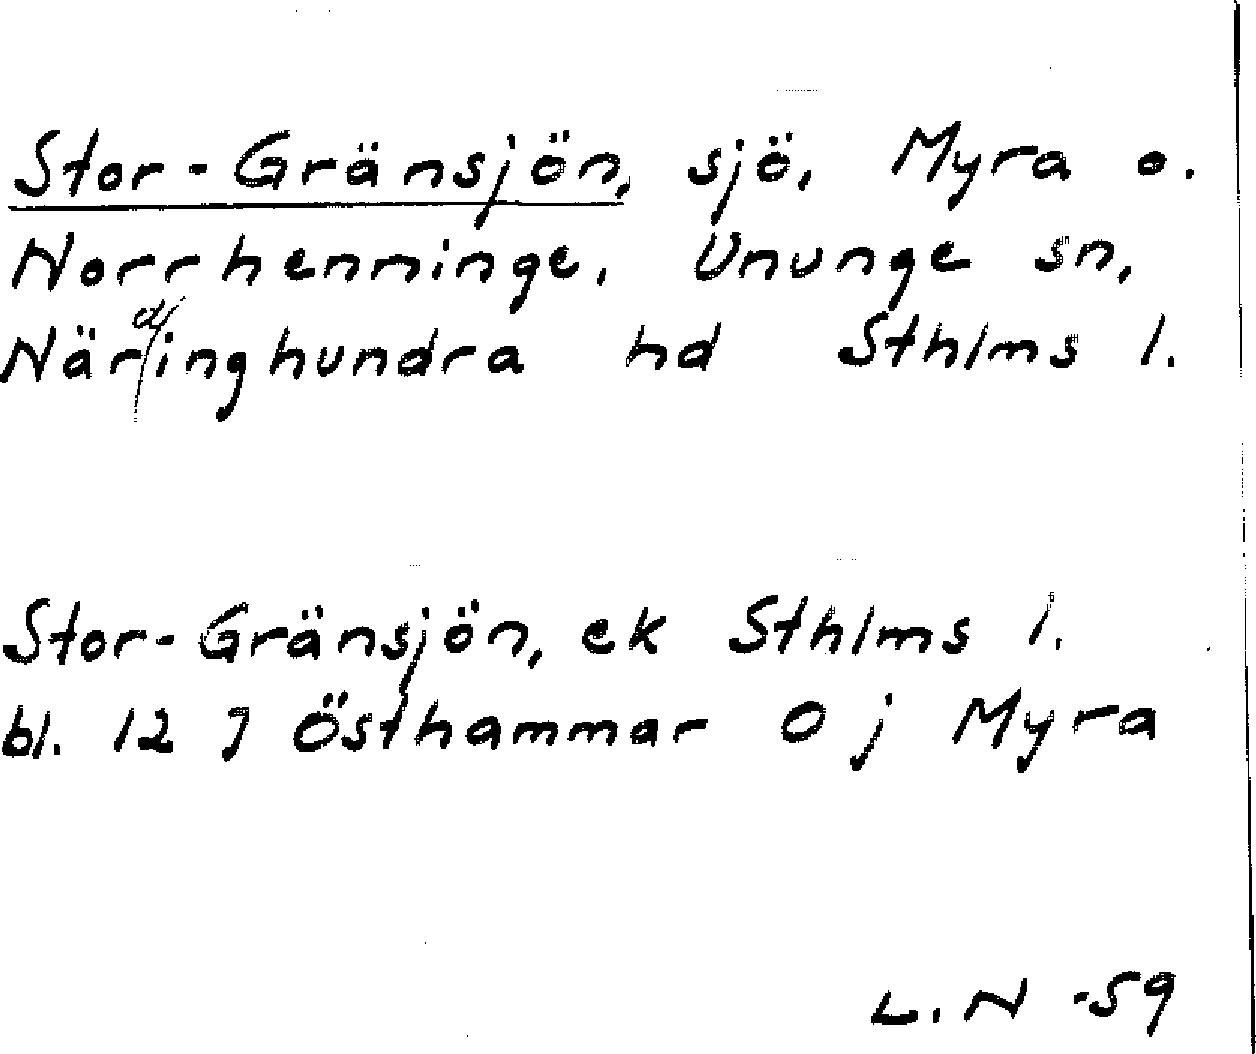 Stor-Gränsjön, sjö, Myra o.
Norrhenninge, Ununge sn,
Närdinghundra hd Sthlms l.
Stor-Gränsjön, ek Sthlms l.
bl. 12 J Östhammar O j Myra
L. N -59